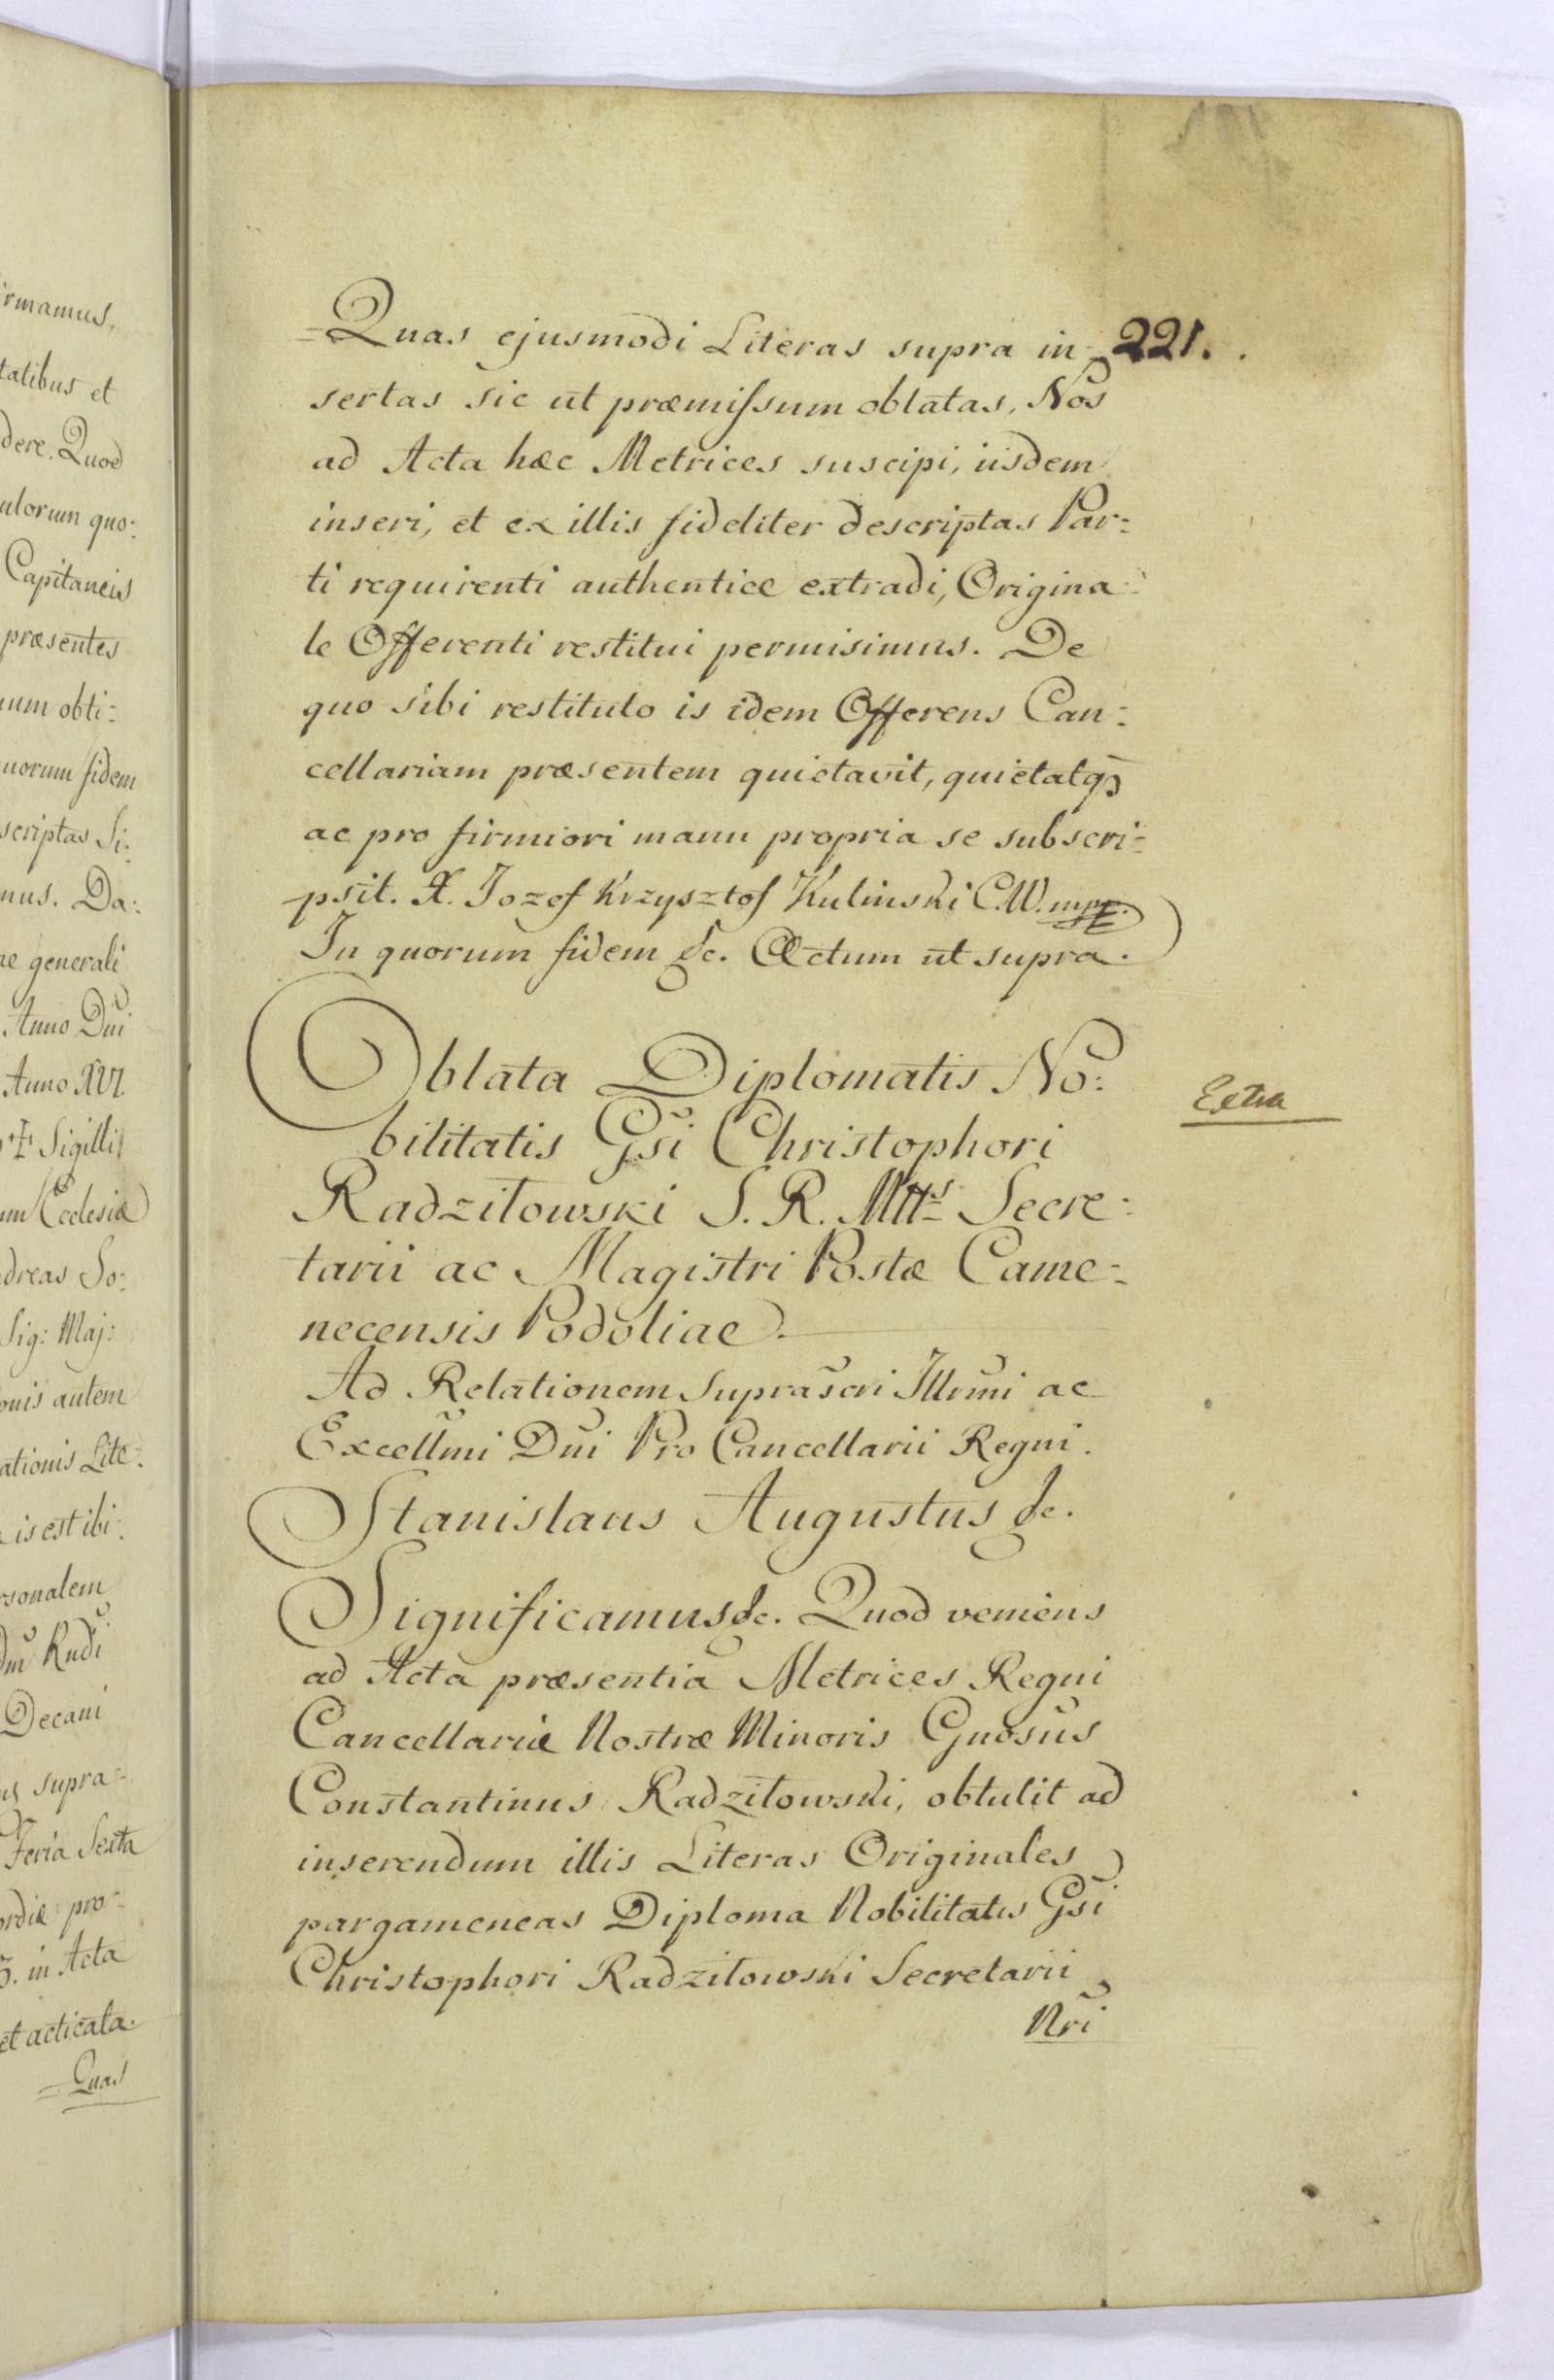 rmamus,
tatibus et
dere. Quod
ulorum quo:
Capitaneis
præsentes
num obti:
uorum fidem
scriptas Si:
mus. Da:
ae generali
Anno Dni
Anno XVI.
Sigilli
um Ecclesiæ
dreas So:
Sig: Maj:
onis autem
ationis Lite:
is est ibi:
rsonalem
Dni Rudi
Decani
supra-
Feria Sexta
ordiæ pro-
3. in Acta
et acticata.
Quas
191
221.
Quas ejusmodi Literas supra in-
sertas sic ut præmissum oblatas, Nos
ad Acta hæc Metrices suscipi, iisdem
inseri, et ex illis fideliter descriptas Par:
ti requirenti authentice extradi, Origina:
le Offerenti restitui permisimus. De
quo sibi restituto is idem Offerens Can:
cellariam præsentem quietavit, quietatq3
ac pro firmiori manu propria se subscri:
psit. X. Jozef Krzysztof Kulinski C.W. mpr.
In quorum fidem &c. Actum ut supra.
Oblata Diplomatis No:
bilitatis Gsi Christophori
Radziłowski S. R. Mtts Secre:
tarii ac Magistri Postæ Came:
necensis Podoliae.
Extra
Ad Relationem Suprascri Illrmi ac
Excellmi Dni Pro Cancellarii Regni.
Stanislaus Augustus &c.
Significamus &c. Quod veniens
ad Acta præsentia Metrices Regni
Cancellariæ Nostræ Minoris Gnosus
Constantinus Radziłowski, obtulit ad
inserendum illis Literas Originales
pargameneas Diploma Nobilitatis Gsi
Christophori Radziłowski Secretarii
Nri